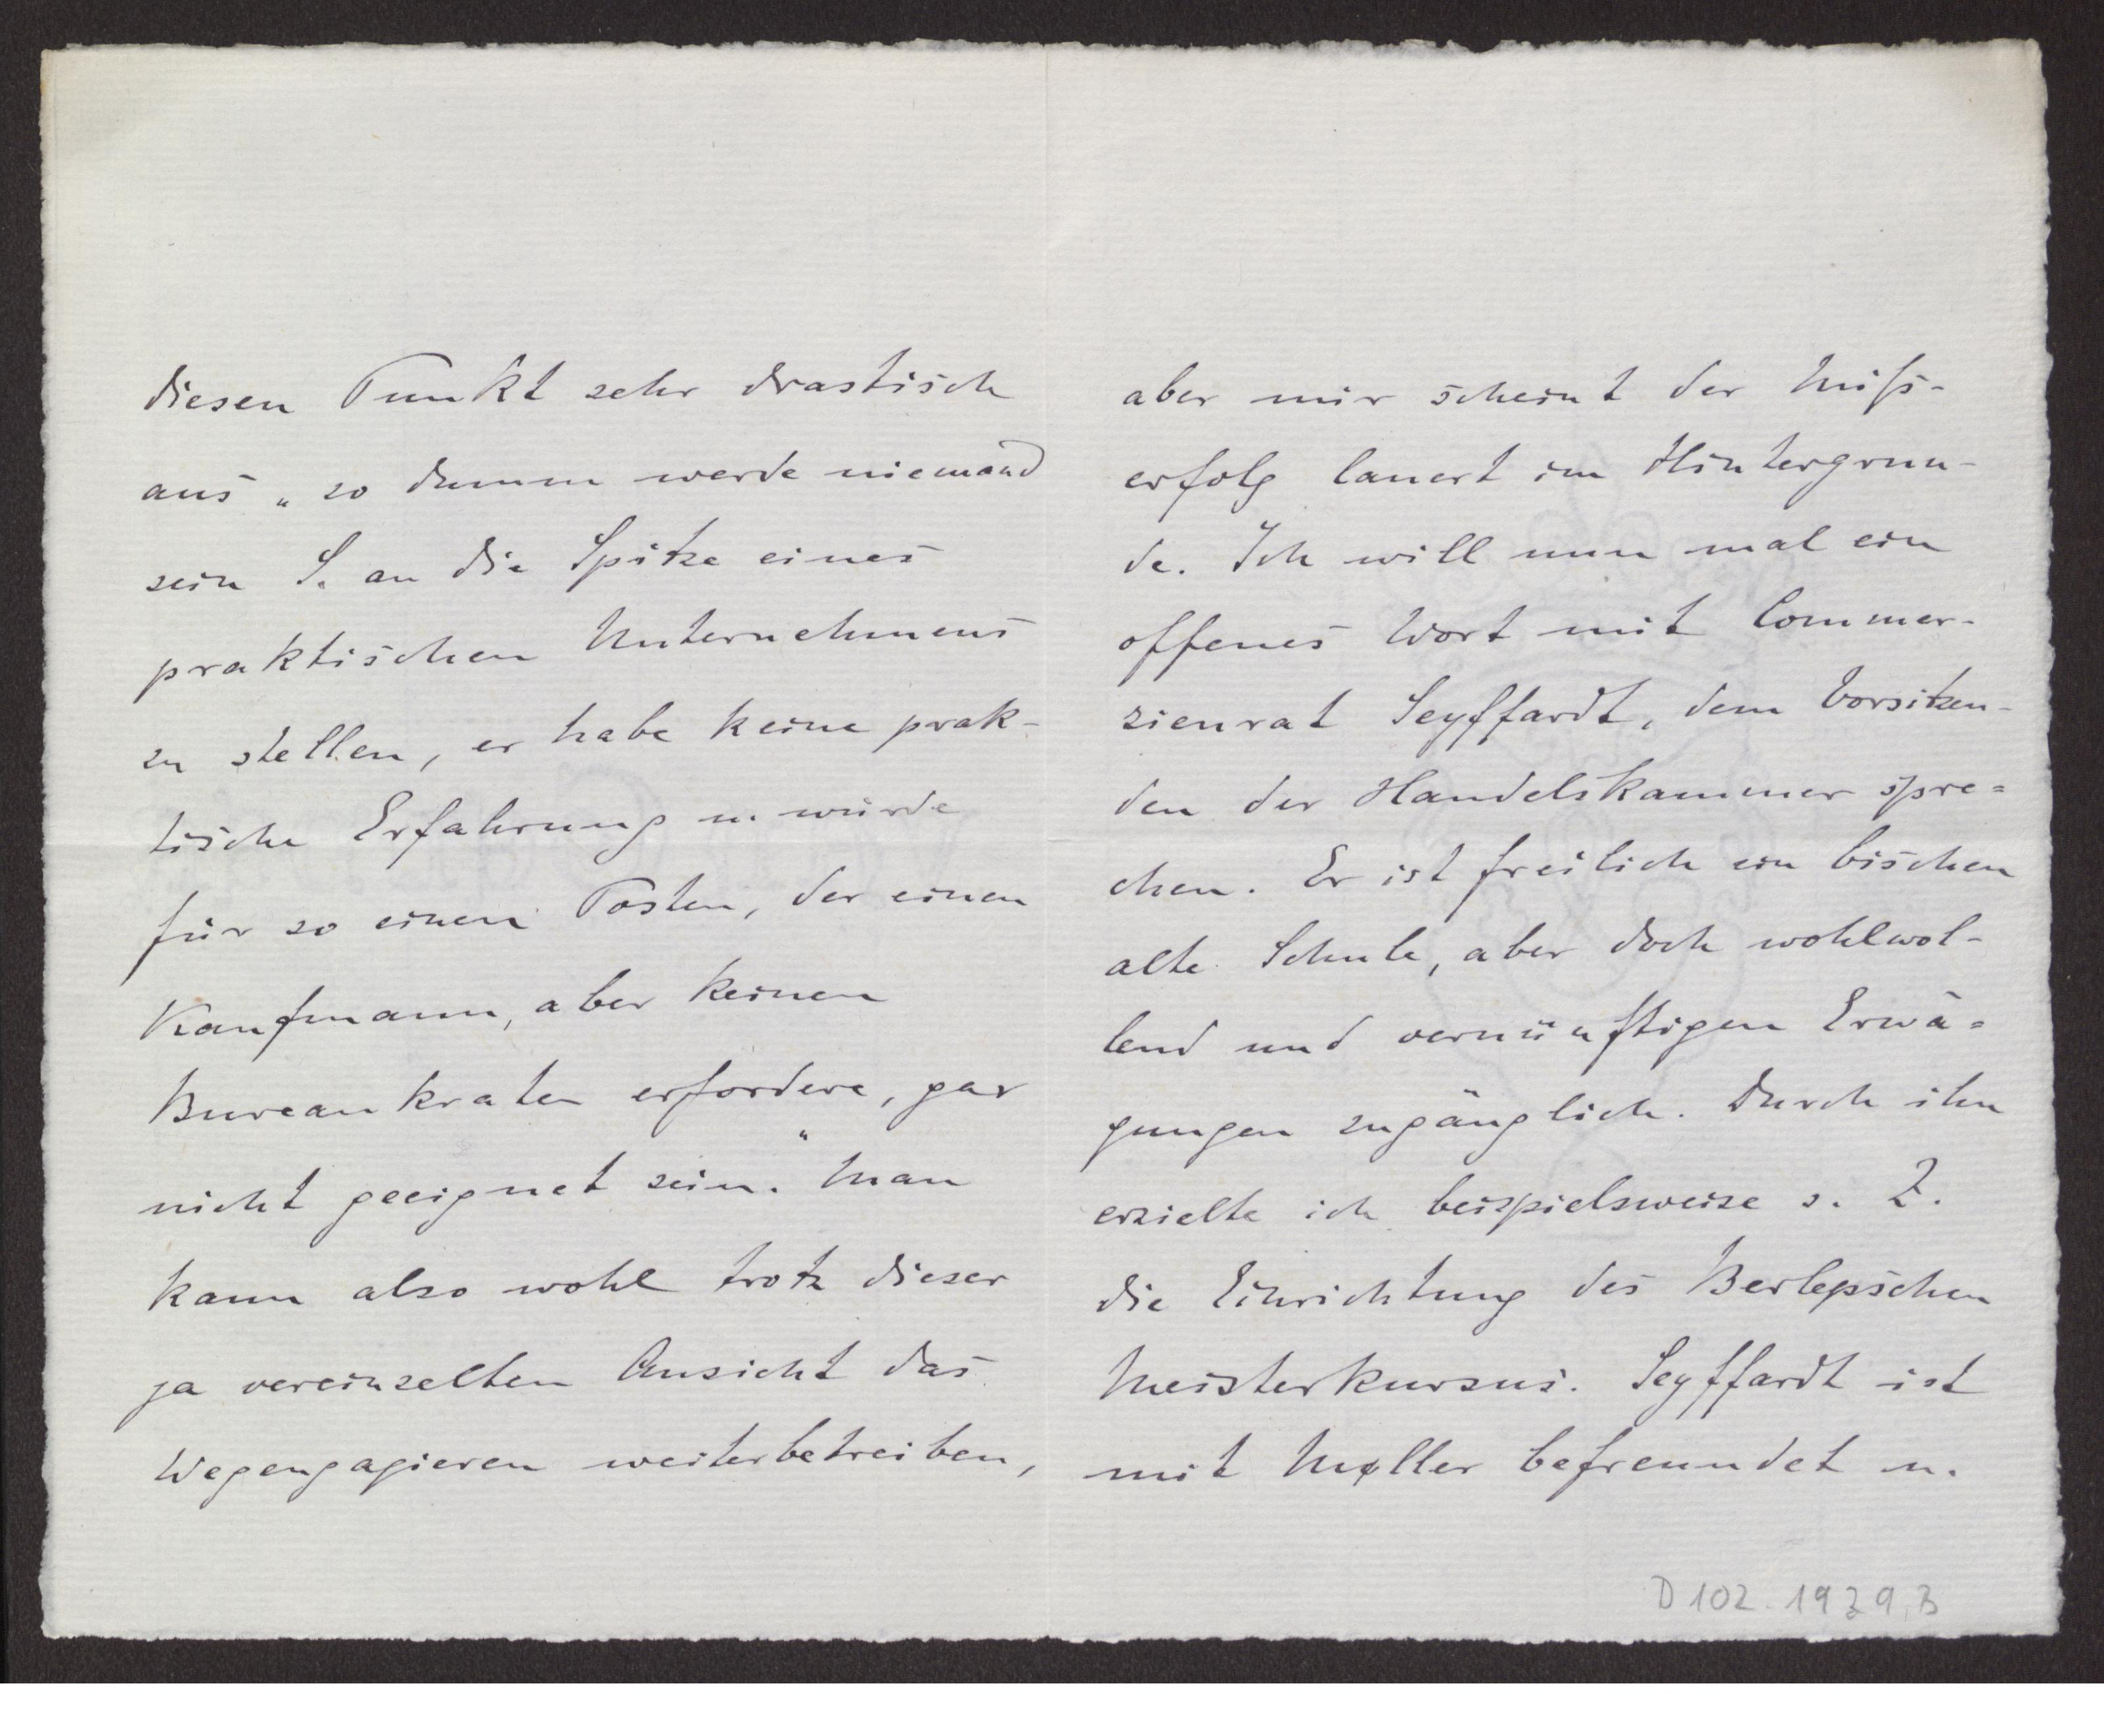 diesen Punkt sehr drastisch
aus „so dumm werde niemand
sein S. an die Spitze eines
praktischen Unternehmens
zu stellen, er habe keine prak-
tische Erfahrung u. würde
für so einen Posten, der einen
Kaufmann, aber keinen
Bureaukraten erfordere, gar
nicht geeignet sein.“ Man
kann also wohl trotz dieser
ja vereinzelten Ansicht das
Wegengagieren weiterbetreiben,
aber mir scheint der Miß-
erfolg lauert im Hintergrun-
de. Ich will nun mal ein
offenes Wort mit Commer-
zienrat Seyffardt, dem Vorsitzen-
den der Handelskammer spre=
chen. Er ist freilich ein bischen
alte Schule, aber doch wohlwol-
lend und vernünftigen Erwä=
gungen zugänglich. Durch ihn
erzielte ich beispielsweise s. Z.
die Einrichtung des Berlepschen
Meisterkursus. Seyffardt ist
mit Møller befreundet u.
D 102. 1939, 3